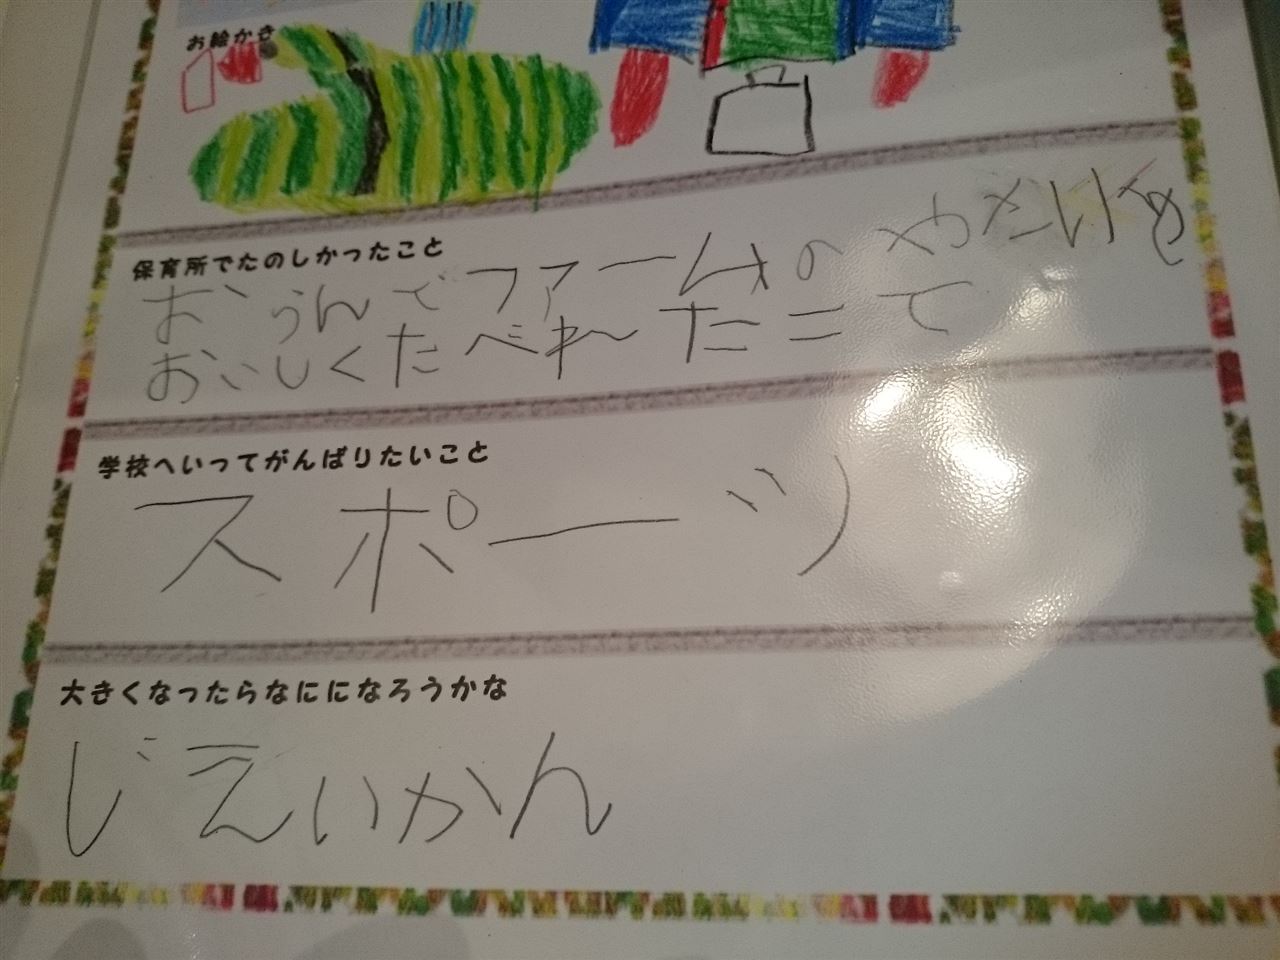 お絵かき
保育所でたのしかったこと
おうんでファームのやたいを
おいしくたべれーたこて
学校へいってがんばりたいこと
スポーツ
大きくなったらなにになろうかな
じえいかん